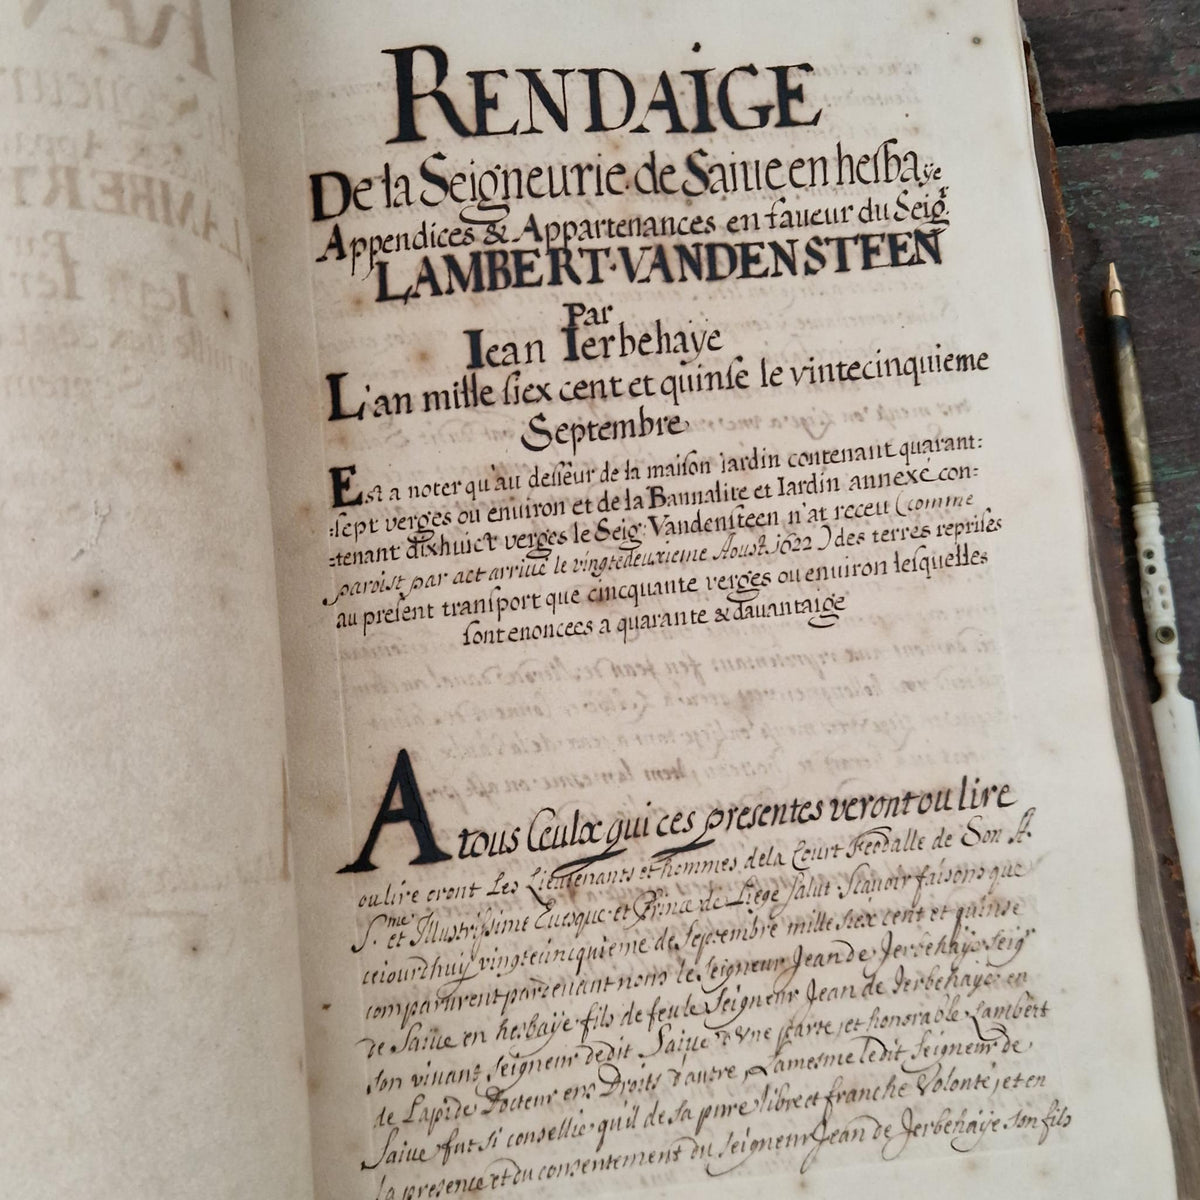 RENDAIGE
De la Seigneurie de Saiue en hesbaÿe
Appendices & Appartenances en faueur du Seigr.
LAMBERT·VANDENSTEEN
Par
Iean Ierbehaÿe
L'an mille siex cent et quinse le vintecinquieme
Septembre
Est a noter qu'au desseur de la maison iardin contenant quarant:
:sept verges ou enuiron et de la Bannalite et Iardin annexé con-
-tenant dixhuict verges le Seig: Vandensteen n'at receu (comme
paroist par act arriué le vingtedeuxieme Aoust 1622) des terres reprises
au present transport que cincquante verges ou enuiron lesquelles
sont enoncees a quarante & dauantaige
A tous Ceulx qui ces presentes veront ou lire
ou lire oront Les Lieutenants et hommes de la Court Feodalle de Son A.
S.me et Illustrissime Euesque et Prince de Liege salut Scauoir faisons que
ceiourdhuij vingtecincquieme de Septembre mille siex cent et quinse
comparurent pardeuant nous le Seigneur Jean de Jerbehaÿe Seigr
de Saiue en hesbaÿe fils de feu le Seigneur Jean de Jerbehaÿe en
son viuant Seigneur dedit Saiue d'Vne parte, et honorable Lambert
de Lapide Docteur ens Droits d'autre, Lamesme ledit Seigneur de
Saiue fut si consellié quil de sa pure libre et franche Volonté, et en
la presence et du consentement du Seigneur Jean de Jerbehaÿe son fils